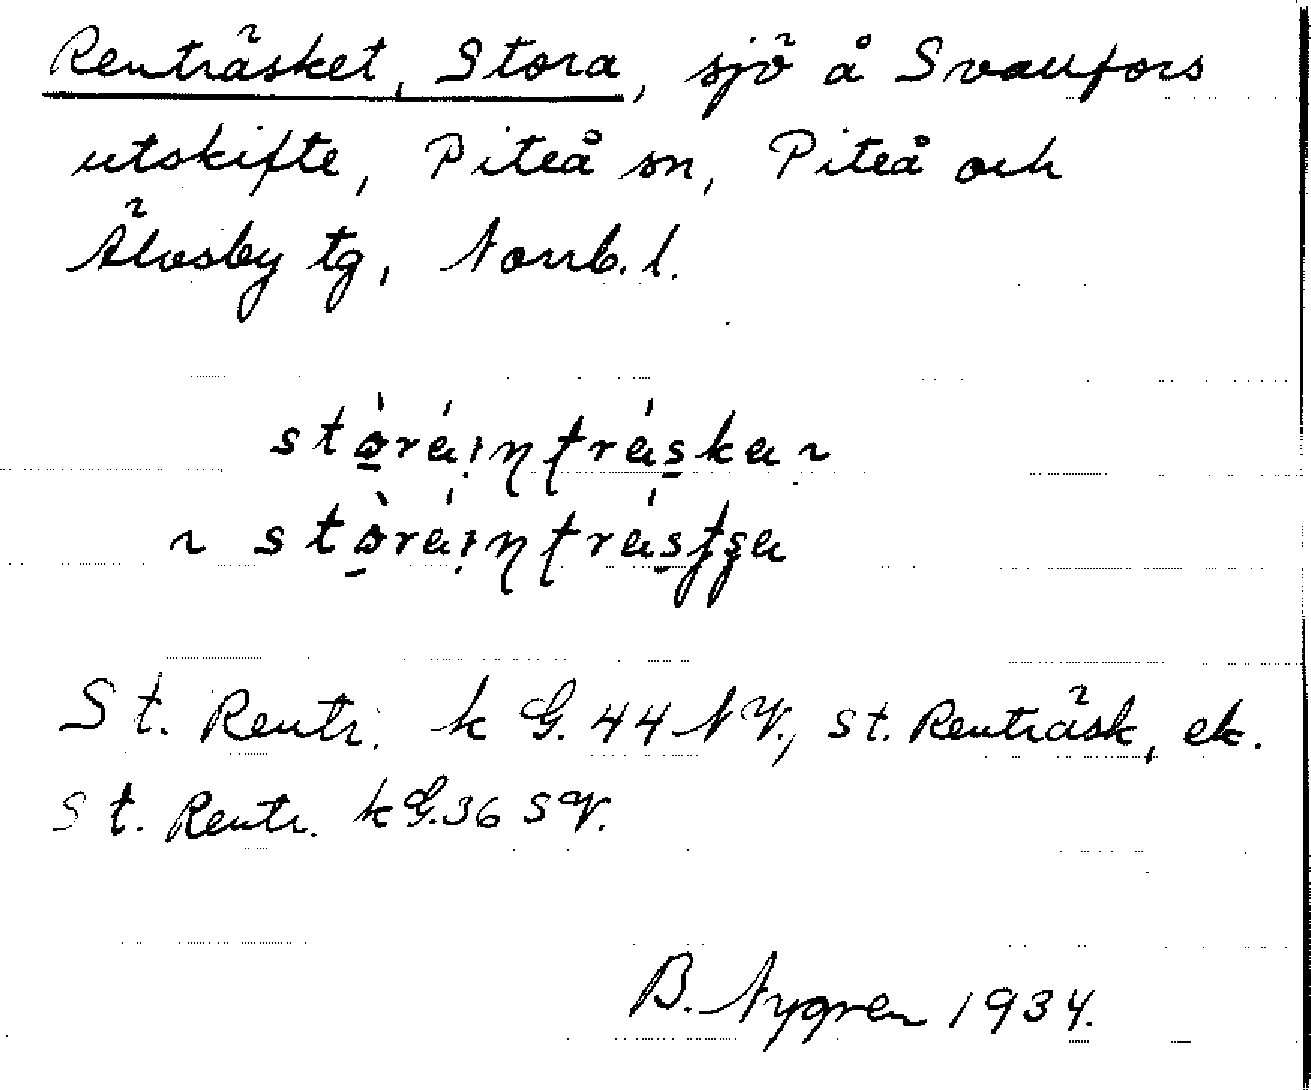 Renträsket, Stora, sjö å Svanfors
utskifte, Piteå sn, Piteå och
Älvsby tg, Norrb. l.
~
~
St. Rentr. k G. 44 NV., St. Renträsk, ek.
St. Rentr. k G. 36 SV.
B. Nygren 1934.